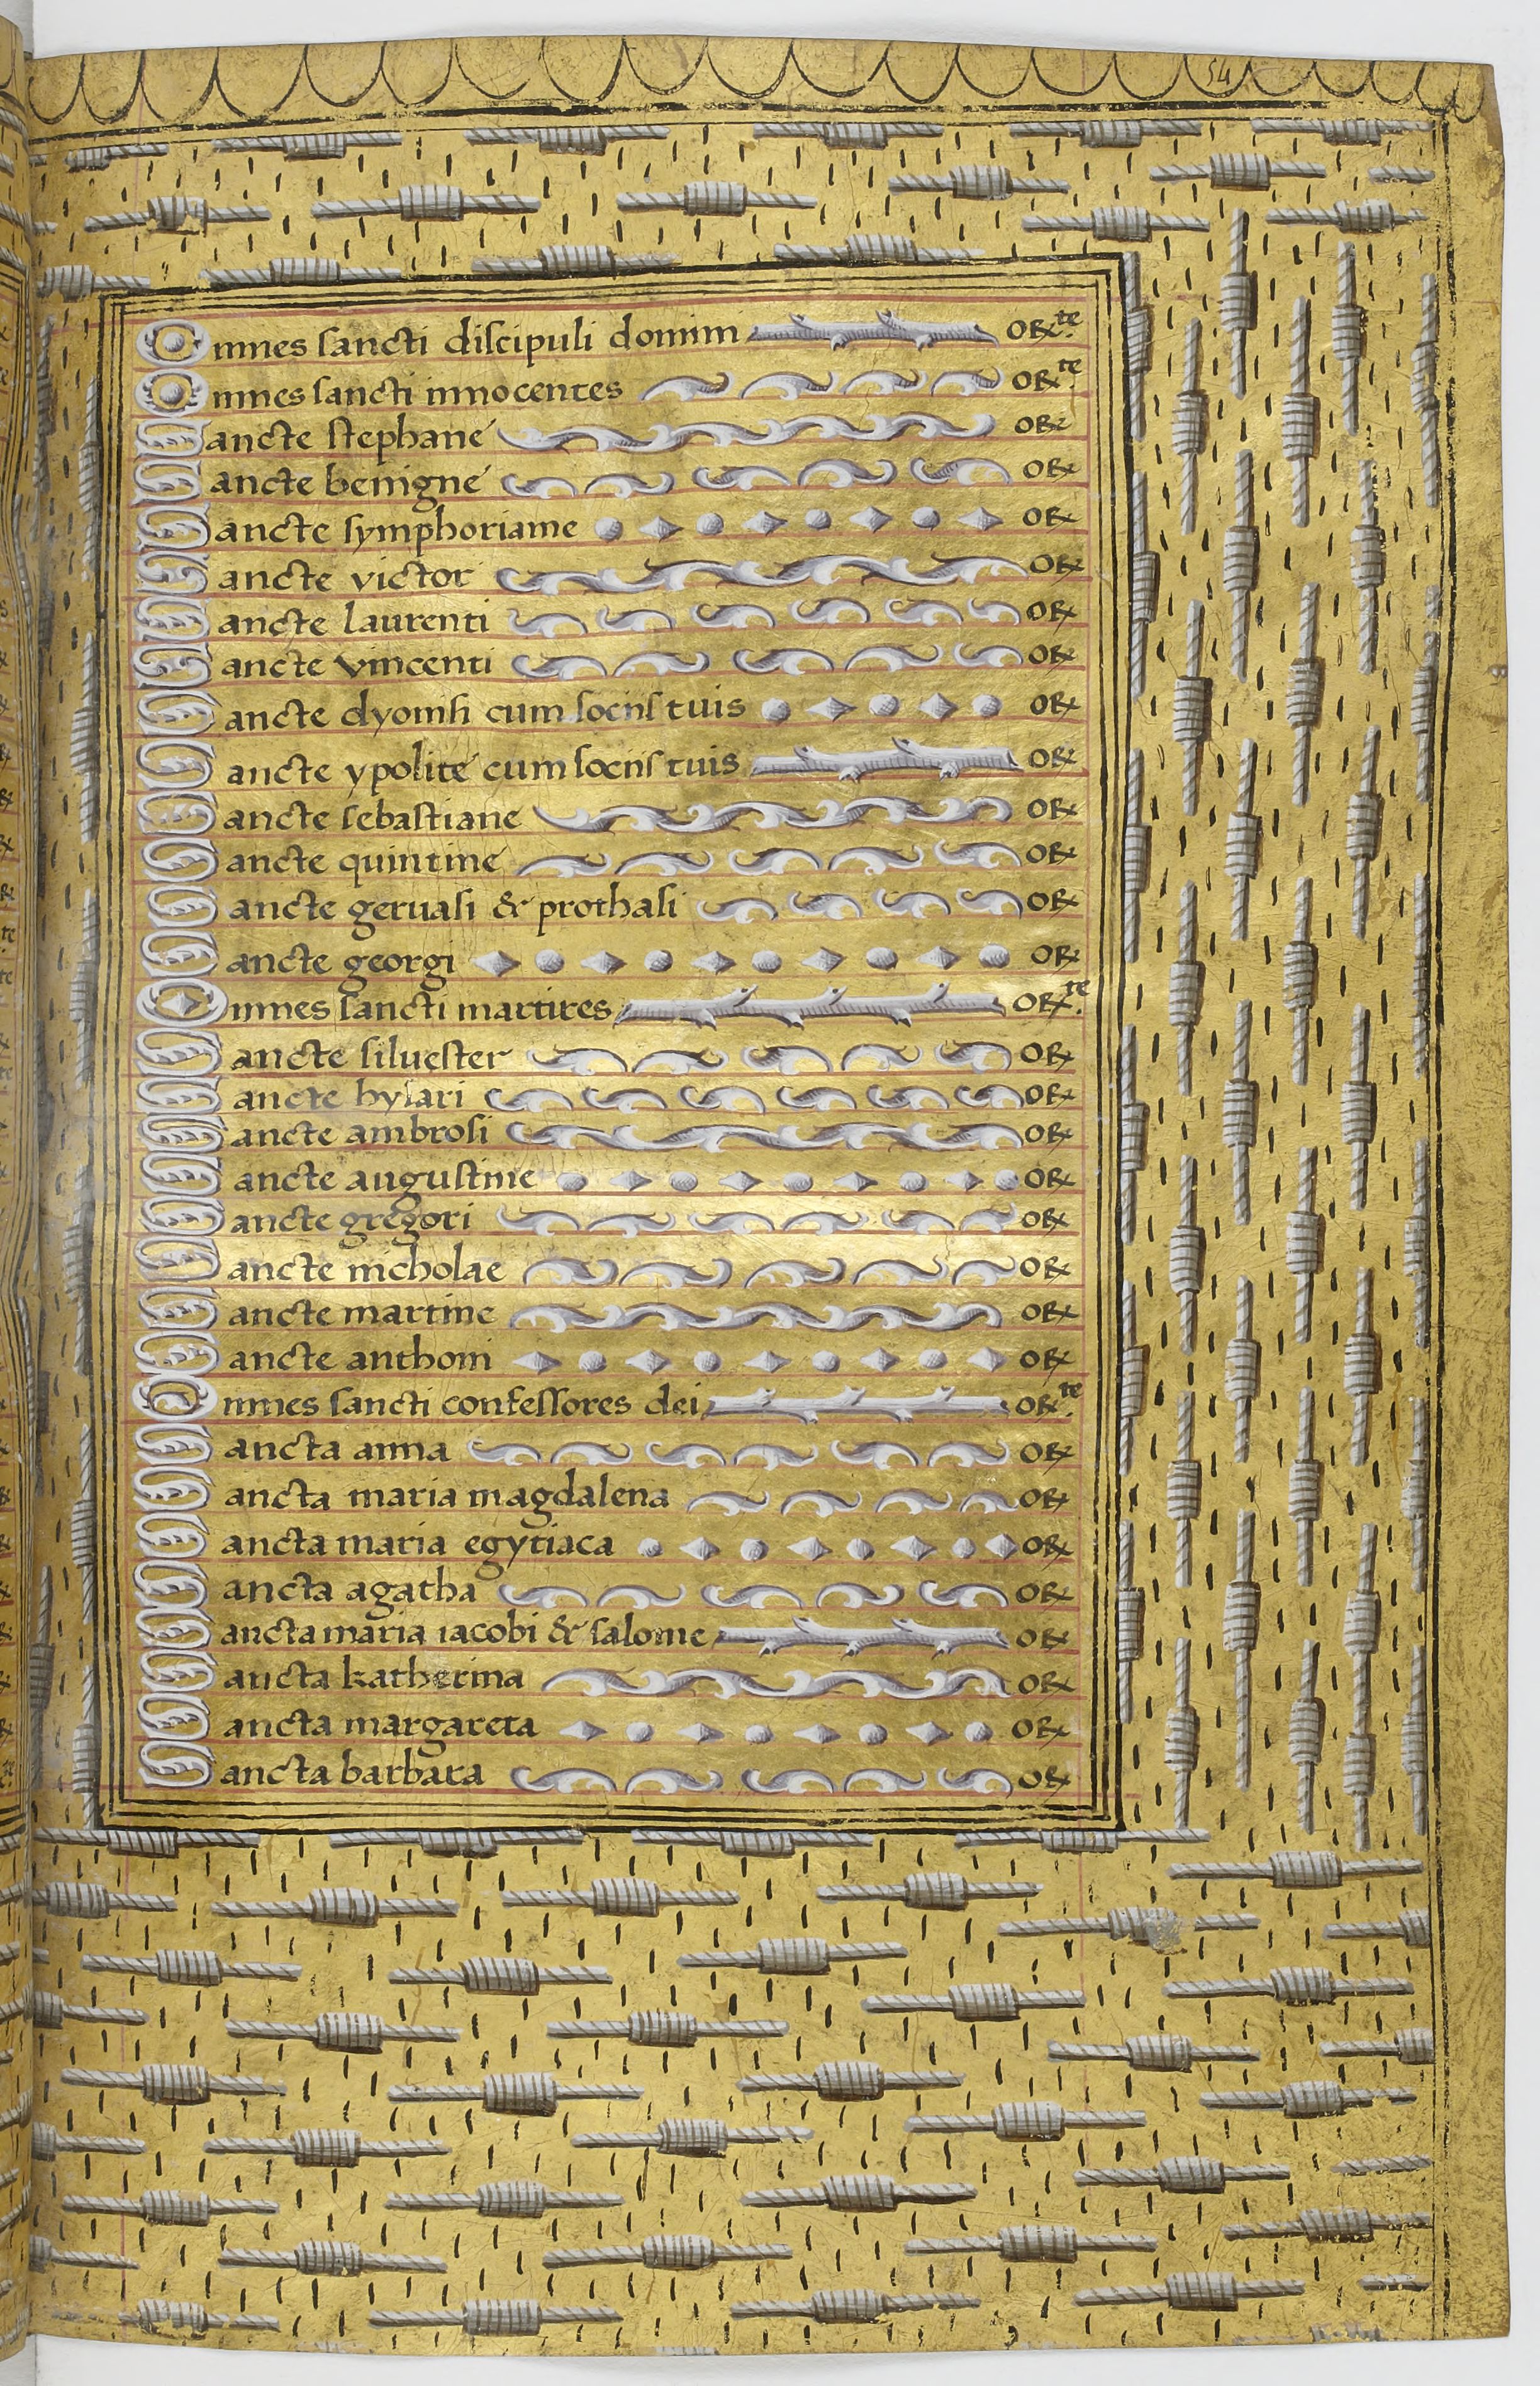 54
Omnes sancti discipuli domini ORate.
Omnes sancti innocentes ORate.
Sancte stephane OR
Sancte benigne OR
Sancte symphoriane OR
Sancte victor OR
Sancte laurenti OR
Sancte vincenti OR
Sancte dyonisi cum sociis tuis OR
Sancte ypolite cum sociis tuis OR
Sancte sebastiane OR
Sancte quintine OR
Sancte geruasi & prothasi OR
Sancte georgi OR
Omnes sancti martires OR te.
Sancte siluester OR
Sancte hylari OR
Sancte ambrosi OR
Sancte augustine OR
Sancte gregori OR
Sancte nicholae OR
Sancte martine OR
Sancte anthoni OR
Omnes sancti confessores dei OR te.
Sancta anna OR
Sancta maria magdalena OR
Sancta maria egytiaca OR
Sancta agatha OR
Sancta maria iacobi & salome OR
Sancta katherina OR
Sancta margareta OR
Sancta barbara OR